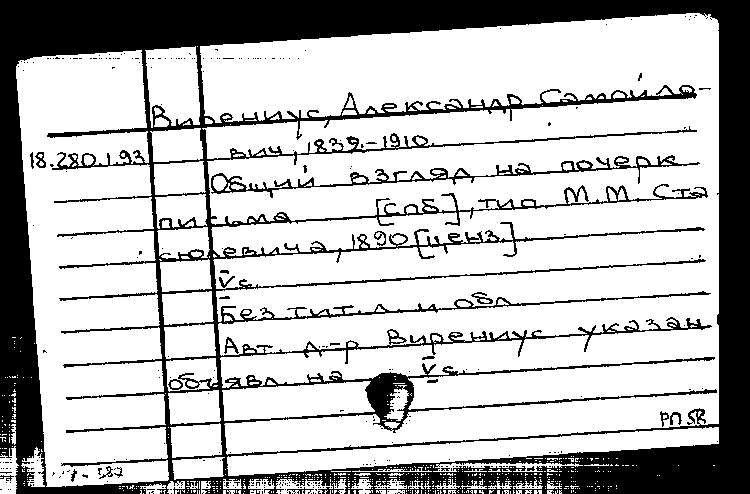 Вирениус, Александр Самойло-
18.280.1.93 вич, 1832-1910.
Общий взгляд на почерк
письма [Спб.], тип. М.М. Ста
сюлевича, 1890 [ценз.].
V с.
Без тит. л. и обл.
Авт. д-р Вирениус указан
объявл. на V с.
РП 5В